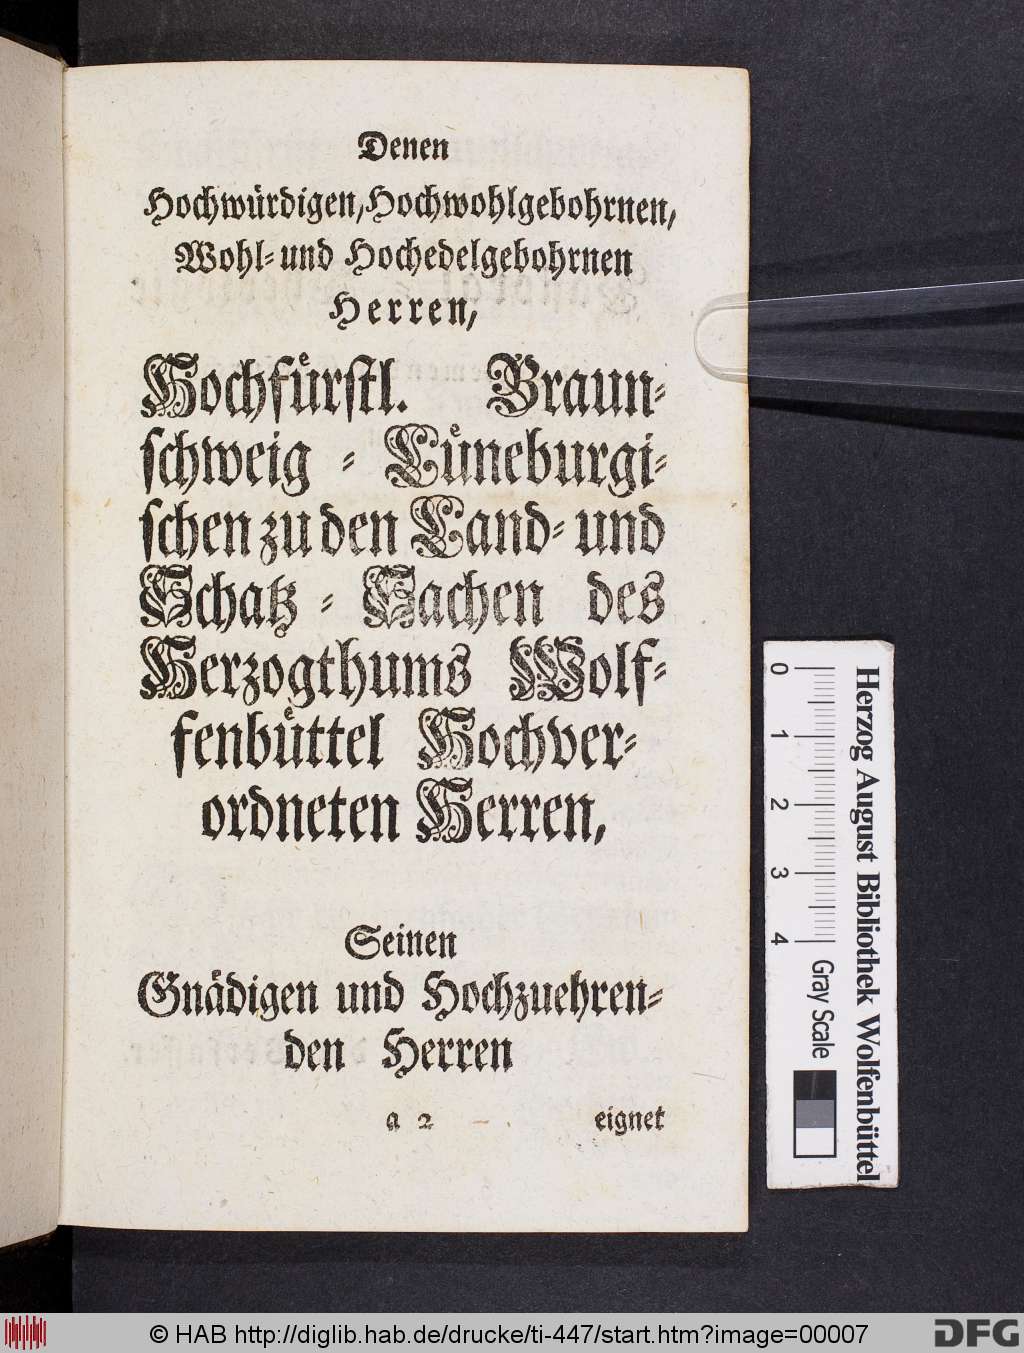 Denen
Hochwürdigen, Hochwohlgebohrnen,
Wohl- und Hochedelgebohrnen
Herren,
Hochfürstl. Braun-
schweig - Lüneburgi-
schen zu den Land- und
Schatz - Sachen des
Herzogthums Wolf-
fenbüttel Hochver-
ordneten Herren,
Seinen
Gnädigen und Hochzuehren-
den Herren
a 2 eignet
0 1 2 3 4 Gray Scale
Herzog August Bibliothek Wolfenbüttel
© HAB http://diglib.hab.de/drucke/ti-447/start.htm?image=00007
DFG